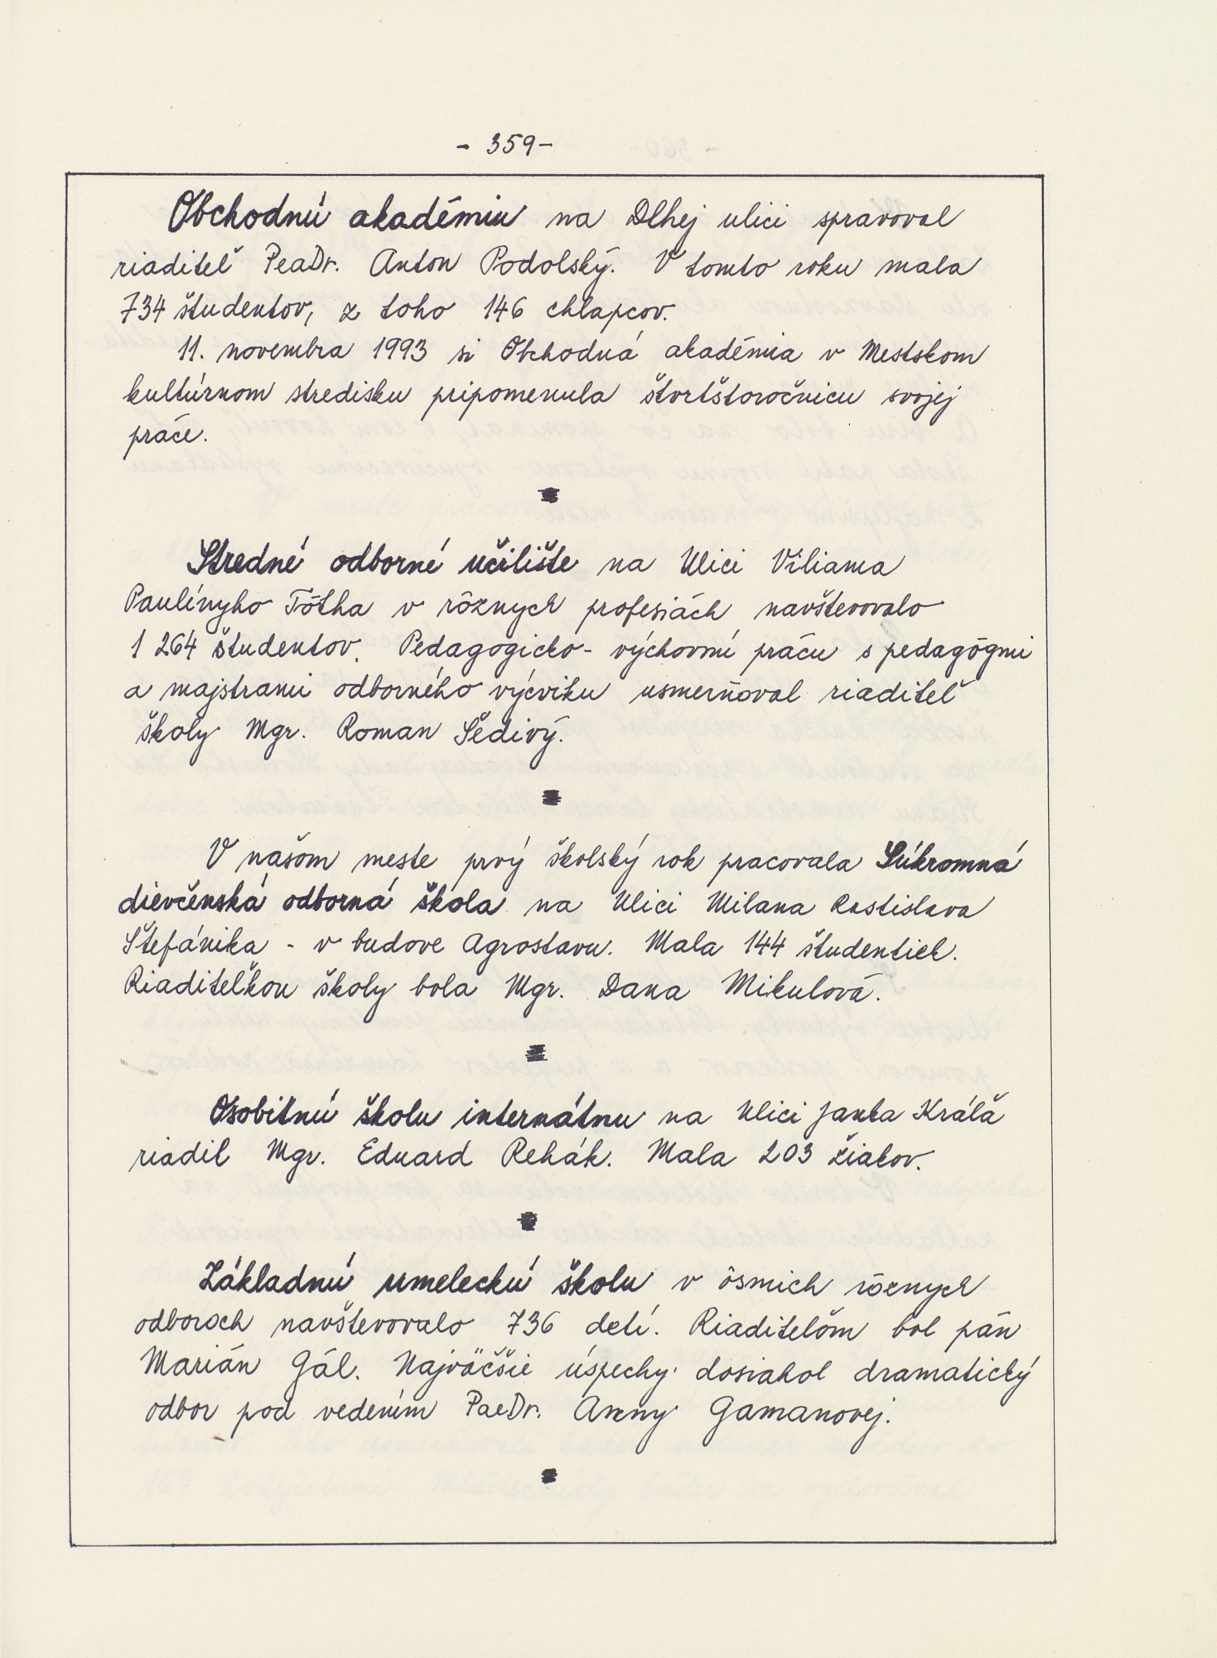 - 359 -
Obchodnú akadémiu na Dlhej ulici spravoval
riaditeľ PeaDr. Anton Podolský. V tomto roku mala
734 študentov, z toho 146 chlapcov.
11. novembra 1993 si Obchodná akadémia v Mestskom
kultúrnom stredisku pripomenula štvrťstoročnicu svojej
práce.
Stredné odborné učilište na Ulici Viliama
Paulínyho Tótha v rôznych profesiách navštevovalo
1 264 študentov. Pedagogicko-výchovnú prácu s pedagógmi
a majstrami odborného výcviku usmerňoval riaditeľ
školy Mgr. Roman Šedivý.
V našom meste prvý školský rok pracovala Súkromná
dievčenská odborná škola na Ulici Milana Rastislava
Štefánika - v budove Agrostavu. Mala 144 študentiek.
Riaditeľkou školy bola Mgr. Dana Mikulová.
Osobitnú školu internátnu na Ulici Janka Kráľa
riadil Mgr. Eduard Rehák. Mala 203 žiakov.
Základnú umeleckú školu v ôsmich rôznych
odboroch navštevovalo 736 detí. Riaditeľom bol pán
Marián Gál. Najväčšie úspechy dosiahol dramatický
odbor pod vedením PaeDr. Anny Gamanovej.